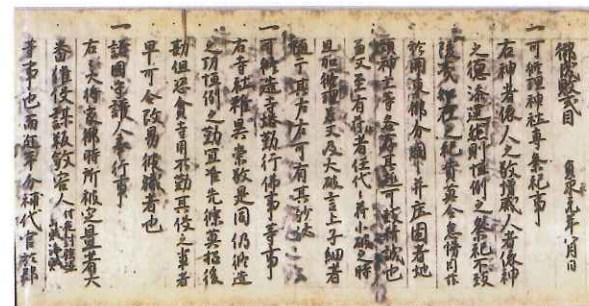 御成敗式目　貞永元年八月日
一可修理神社専祭祀事
右神者依人之敬増威人者依神
之徳添運然則恒例之祭祀不致
陵夷如在之礼奠莫令怠慢因茲
於関東御分国々并庄園者地
頭神主等各存其趣可致精誠也
兼又至有封社者任代々符小破之時
且加修理若及大破言上子細者
随于其左右可有其沙汰
一可修造寺塔勤行佛事等事
右寺社雖異崇敬是同仍修造
之功恒例之勤宜准先條莫招後
勘但恣貪寺用不勤其役之輩者
早可令改易彼職者也
一諸国守護人奉行事
右大将家御時所被定置者大
番催促謀叛殺害人付夜討強盗山賊海賊
等事也而近年分補代官於郡